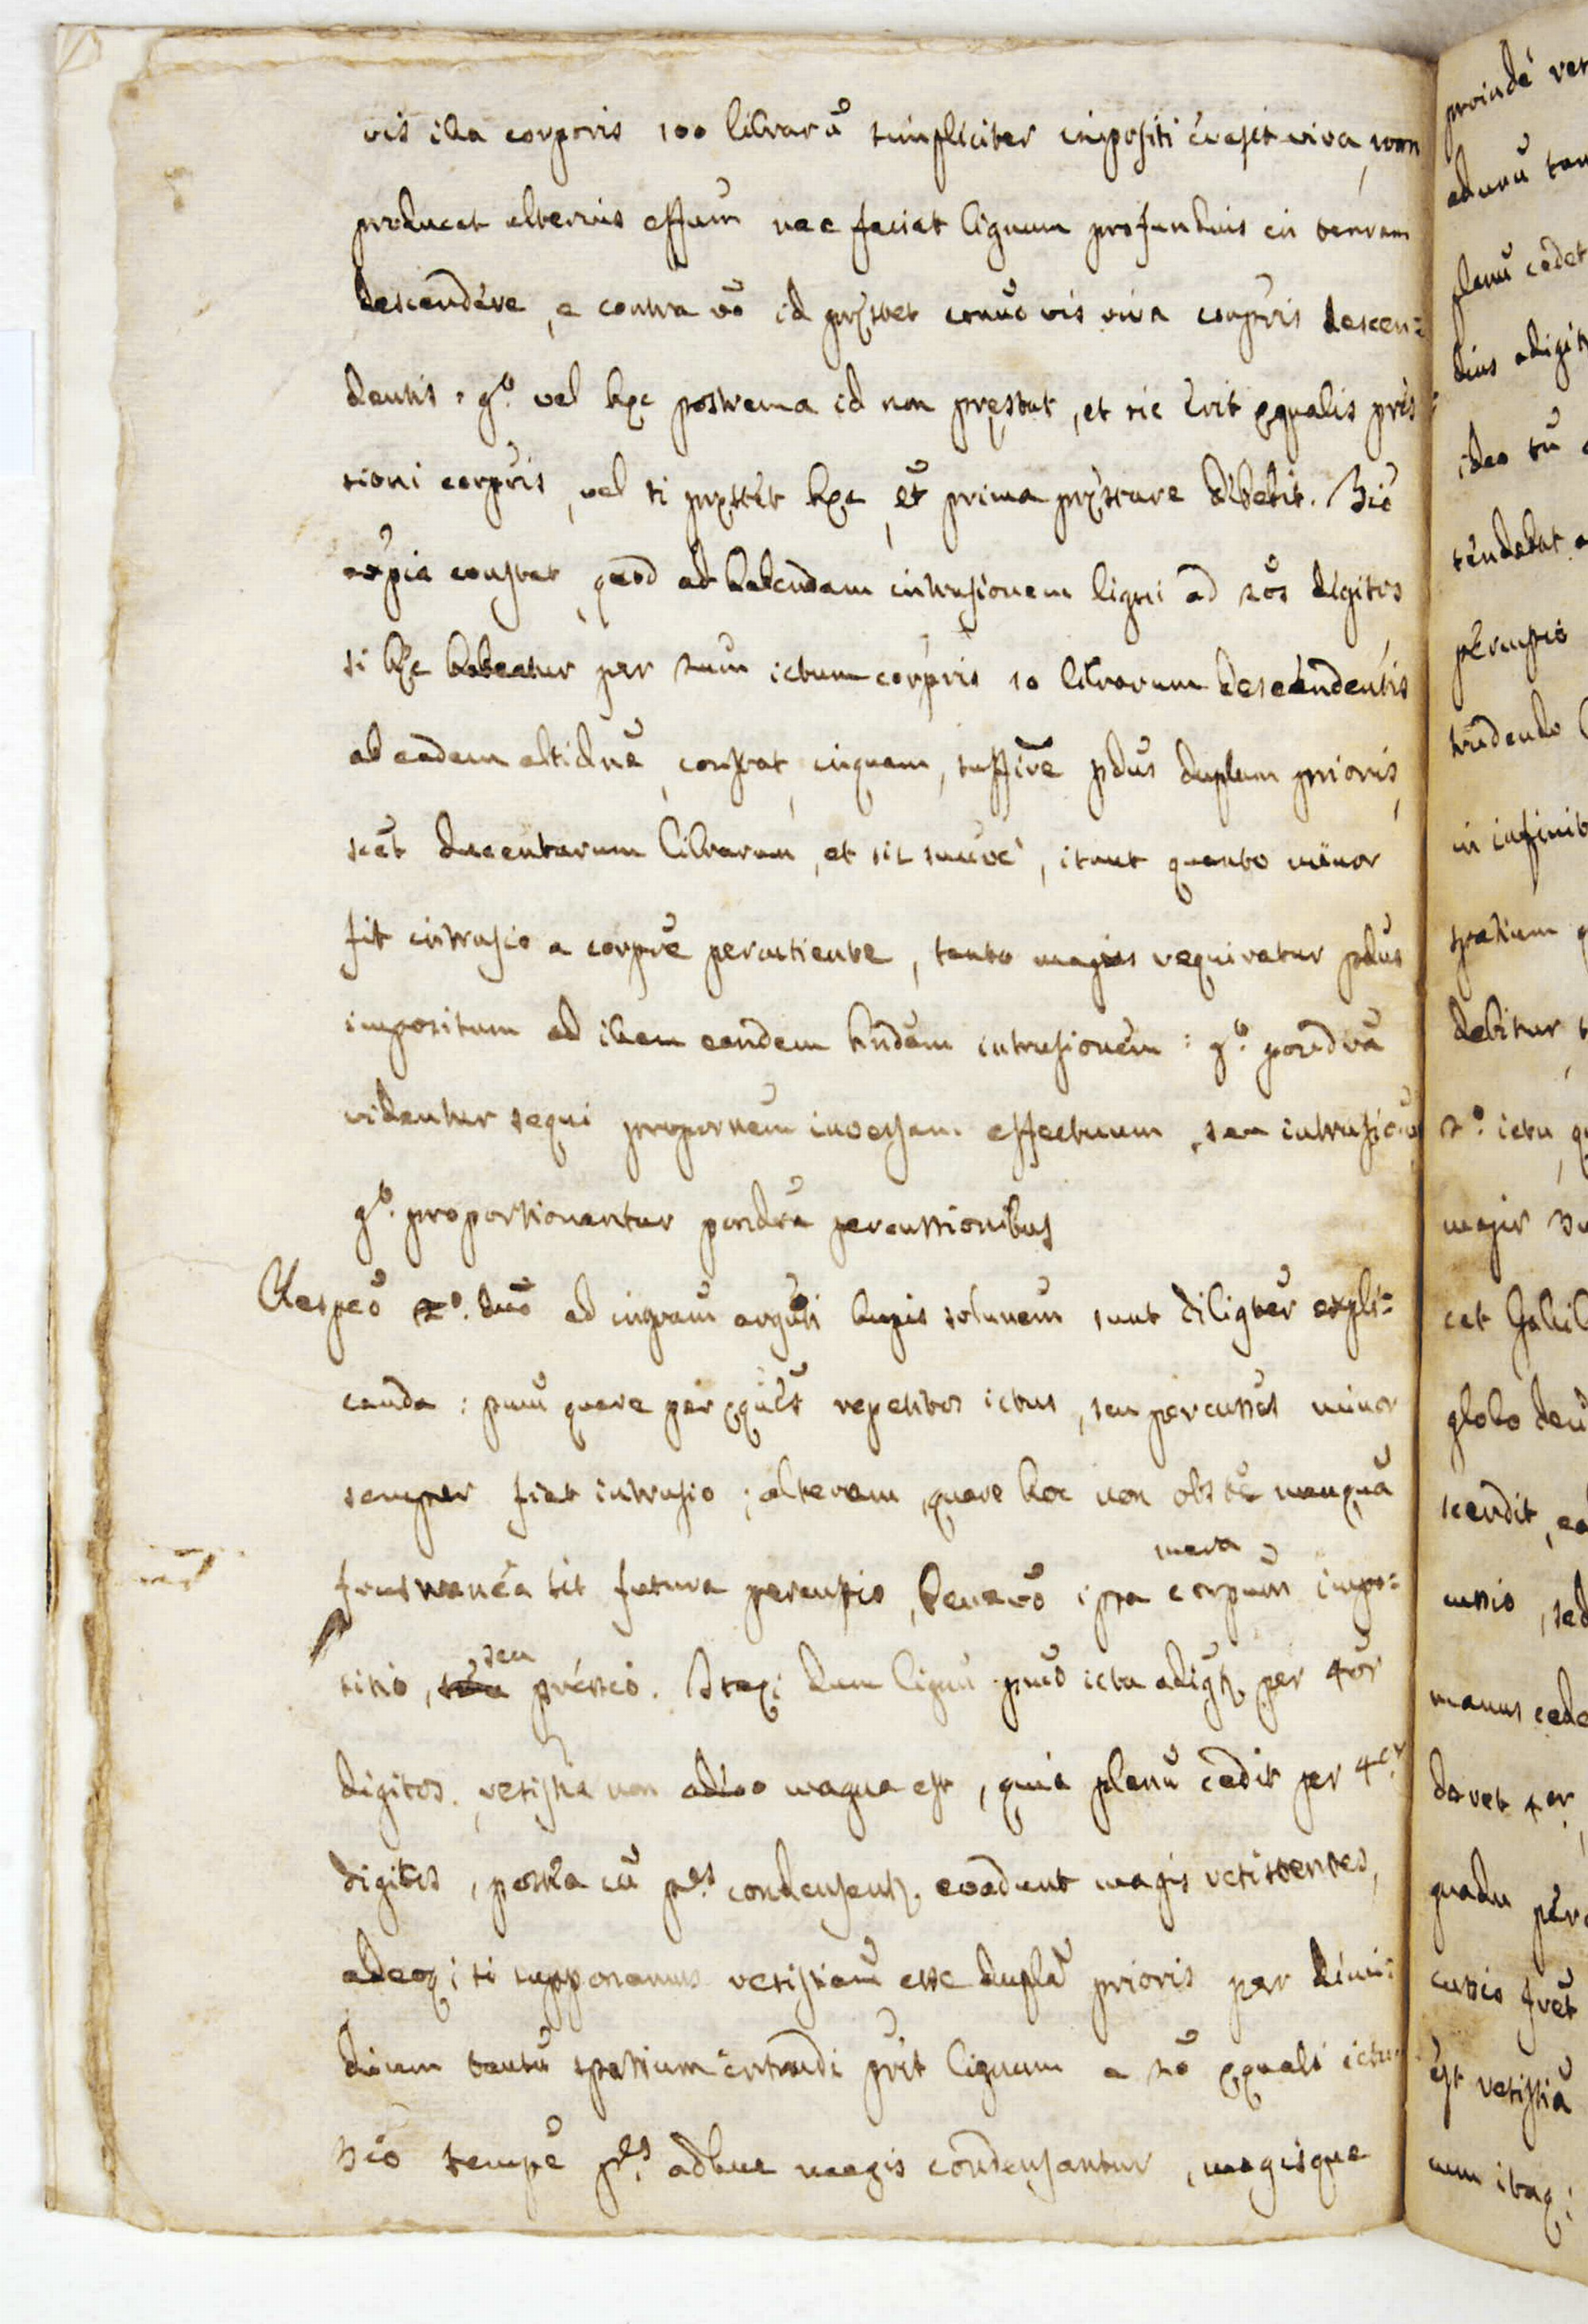 vis illa corporis 100 librarũ simpliciter impositi evasit viva, non
producat ulterius effum nec faciat lignum profundius in terram
descendere, e contra võ id pręstet conuo vis viva corpris descen=
dentis. gº. vel hęc postrema id non pręstat, et sic erit ęqualis pres
sioni corpris, vel si pręstet hęc, et prima pręstare debebit. 3iõ
expia constat, quod ad habendam intrusionem ligni ad 2os digitos
si hęc habeatur per 2um ictum corpris 10 librarum descendentis
ab eadem altidne, constat, inquam, suffire pdus duplum prioris,
scet ducentarum librarum, et sic suuve, itaut quanto minor
fit intrusio a corpre percutiente, tanto magius requiratur pdus
impositum ad illam eandem hndam intrusionem: gº. pondra
videntur sequi proporнem inversam effectuum, seu intrusionũ
gº. proportionantur pondra percussionibus
Respeõ 2º. duõ ad ingram arguti hujus solunem sunt diligter expli=
canda: pmũ quare per ęques repetitos ictus, seu percusses minor
semper fiat intrusio; alterum, quare hoc non obste nunquã
frustranea sit futura percussio, bene võ ipsa mera corpum impo=
sitio, seu pressio. Itaq; dum lignũ pmõ ictu adigtr per 4or
digitos, resistia non adeo magna est, quia planũ cedit per 4or
digitos, postea cũ ptes condensentr evadunt magis resistentes,
adeoq; si supponamus resistiam esse duplã prioris per dimi=
dium tantũ spatium intrudi prit lignum a 2õ ęquali ictu
3iõ tempe ptes adhuc magis condensantur, magisque
proinde
plenũ cedet
ideo tũ
trudendo
in infinit
spatium
debitur
2º. ictu, q
cet Galil
globo
scendit, ea
cussio, sed
manus cede
4or
gradu
est resistiã